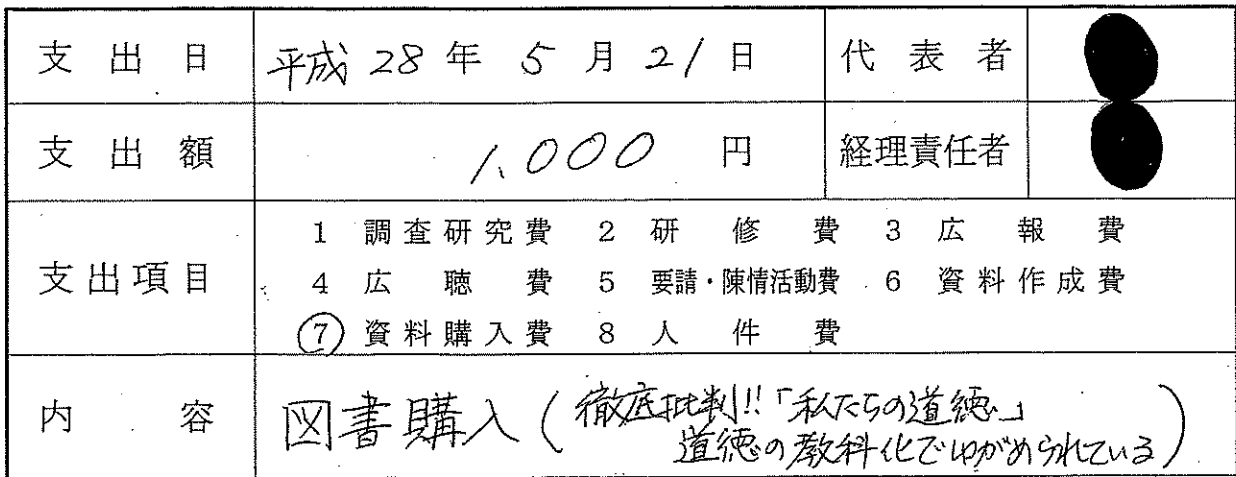 支出日 平成 28 年 5 月 21 日 代表者
支出額 1,000 円 経理責任者
1 調査研究費 2 研修費 3 広報費
支出項目 4 広聴費 5 要請・陳情活動費 6 資料作成費
⑦ 資料購入費 8 人件費
内容 図書購入(徹底批判!!「私たちの道徳」
道徳の教科化でゆがめられている)